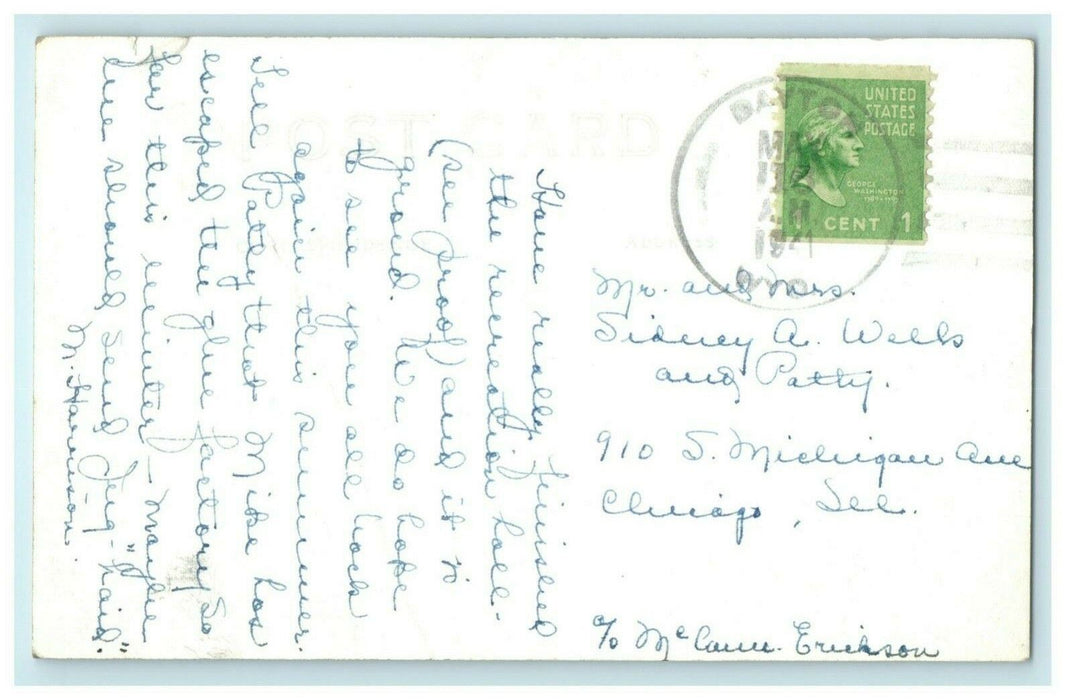 POST CARD
ADDRESS
MA
AM
1941
WYO
UNITED
STATES
POSTAGE
GEORGE
WASHINGTON
1 CENT 1
Have really finished
the recreation hall.
(see proof) and it is
ground. We do hope
to see you all back
again this summer.
Tell Patty that Mike has
escaped the glue factory so
far this winter – maybe
we should send Jug-"head".
M. Harrison.
Mr. and Mrs.
Sidney A. Wells
and Patty.
910 S. Michigan Ave
Chicago, Ill.
c/o McCann-Erickson